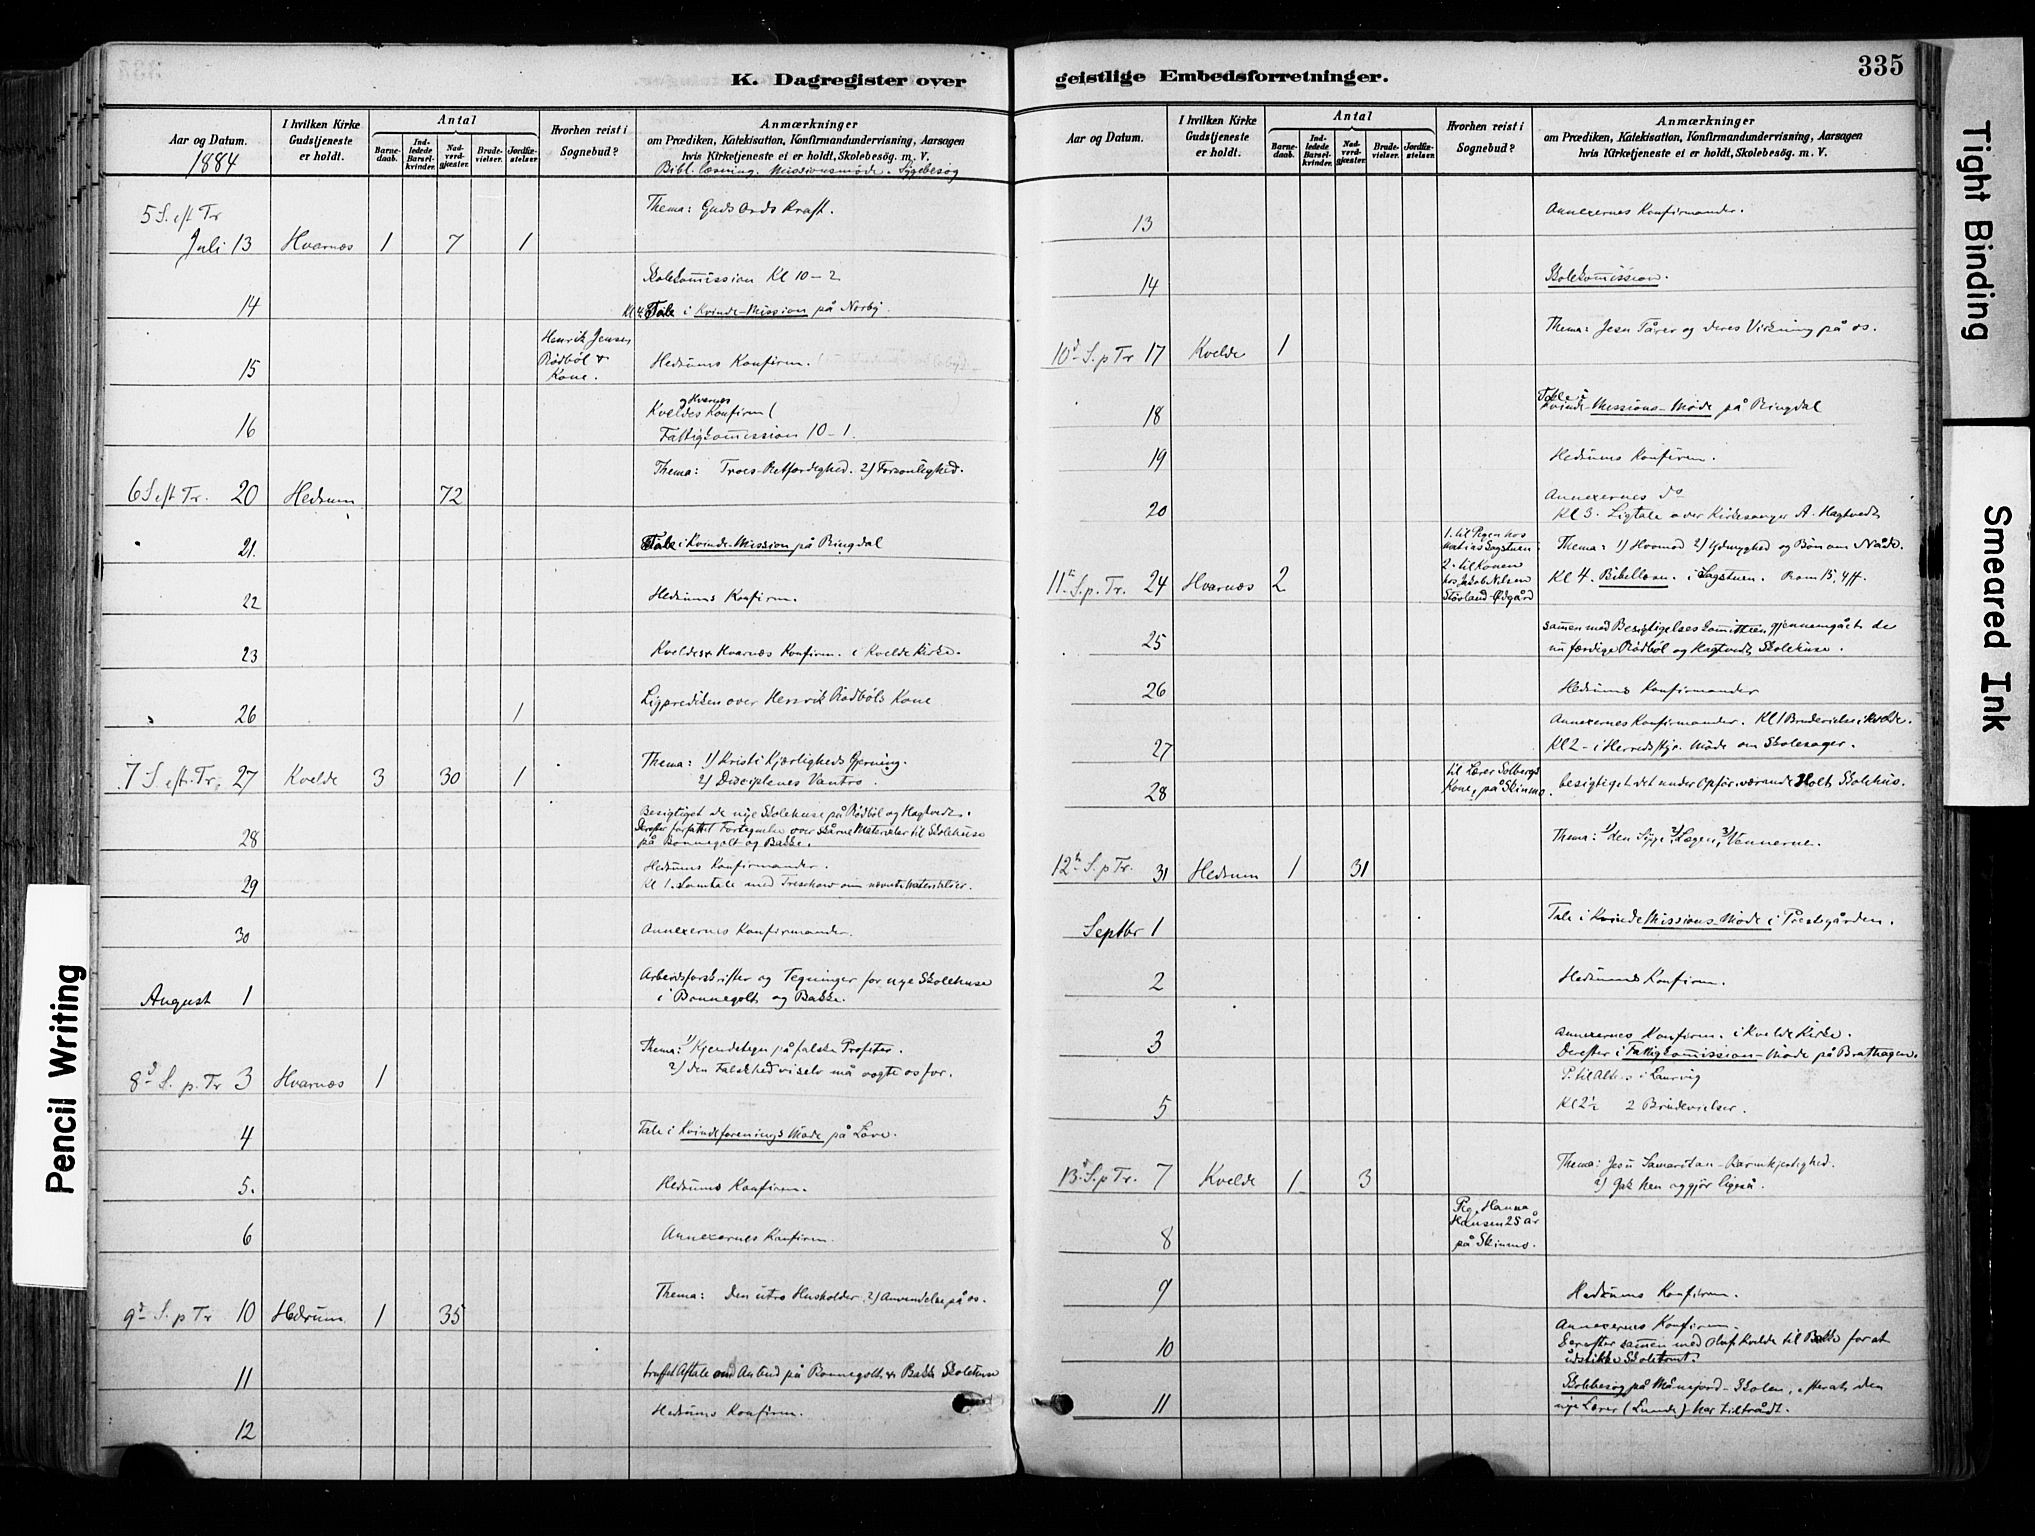 K. Dagregister over
geistlige Embedsforretninger.
335
Aar og Datum.
1884
I hvilken Kirke
Gudstjeneste
er holdt.
Antal
Barne-
daab.
Ind-
ledede
Barsel-
kvinder.
Nad-
verd-
gjester.
Brude-
vielser.
Jordfæ-
stelser
Hvorhen reist i
Sognebud?
Anmærkninger
om Prædiken, Katekisation, Konfirmandundervisning, Aarsagen
hvis Kirketjeneste ei er holdt, Skolebesög. m. V.
Bibl. læsning. Missionsmöde. Sygebesög
5 S. eft Tr
Thema: Guds Ords Kraft.
Juli 13 Hvarnæs 1 7 1
Skolekommission Kl 10-2
14 Kl 4 Tale i Kvinde-Mission på Norby.
Henrik Jensen
Rödböl &
Kone.
15 Hedrums Konfirm.
og Hvarnes
Kveldes Konfirm
16 Fattigkommission 10-1.
Thema: Troes-Retfærdighed. 2) Forsonlighed.
6 S eft Tr. 20 Hedrum 72
21. Tale i Kvinde-Mission på Ringdal
22 Hedrums Konfirm.
23 Kveldes & Hvarnæs Konfirm. i Kvelde Kirke.
26 1 Ligprediken over Henrik Rödböls Kone
Thema: 1) Kristi Kjærligheds Gjerning.
7 S. eft. Tr. 27 Kvelde 3 30 1 2) Disciplenes Vantro.
Besigtiget de nye Skolehuse på Rödböl og Hagtvedt.
Derefter forfattet Fortegnelse over Materialer til Skolehuse
28 på Bonnegolt og Bakke.
Hedrums Konfirmander.
29 Kl 1. Samtale med Treschow om nævnte Materialier.
30 Annexernes Konfirmander.
Arbeidsforskrifter og Tegninger for nye Skolehuse
August 1 i Bonnegolt og Bakke.
Thema: 1) Kjendetegn på falske Profeter.
8d S. p. Tr 3 Hvarnæs 1 2) den Falskhed vi selv må vogte os for.
4 Tale i Kvindeforenings Möde på Löve.
5. Hedrums Konfirm.
6 Annexernes Konfirm.
Thema: Den utro Husholder. 2) Anvendelse på os.
9d S. p Tr 10 Hedrum 1 35
11 truffet Aftale om Anbud på Bonnegolt & Bakke Skolehuse
12 Hedrums Konfirm.
Aar og Datum.
I hvilken Kirke
Gudstjeneste
er holdt.
Antal
Barne-
daab.
Ind-
ledede
Barsel-
kvinder.
Nad-
verd-
gjester.
Brude-
vielser.
Jordfæ-
stelser
Hvorhen reist i
Sognebud?
Anmærkninger
om Prædiken, Katekisation, Konfirmandundervisning, Aarsagen
hvis Kirketjeneste ei er holdt, Skolebesög. m. V.
13 Annexernes Konfirmander.
14 Skolekommission.
Thema: Jesu Tårer og deres Virkning på os.
10d S. p Tr 17 Kvelde 1
18 Tale i Kvinde-Missions-Möde på Ringdal
19 Hedrums Konfirm.
Annexernes do
20 Kl 3. Ligtale over Kirkesanger A. Hagtvedt
1. til Pigen hos
Mathias Sagstuen
2. til Konen
hos Jakob Nilsen
Stövland-Ödgård
Thema: 1) Hovmod 2) Ydmyghed og Bön om Nåde.
11te S. p. Tr. 24 Hvarnæs 2 Kl 4. Bibellæsn. i Sagstuen. Rom 15, 4ff.
sammen med Besigtigelseskomitteen gjennemgået de
25 nu færdige Rödböl og Hagtvedt Skolehuse.
26 Hedrums Konfirmander
Annexernes Konfirmander. Kl 1 Brudevielse i Kvelde.
27 Kl 2 - i Herredsstyr. Möde om Skolesager.
til Lærer Solbergs
Kone, på Skinmo
28 besigtiget det under Opför. værende Holt Skolehus.
Thema: 1) den Syge, 2) Lægen, 3) Vennerne.
12te S. p Tr. 31 Hedrum 1 31
Septbr 1 Tale i Kvinde Missions-Möde i Præstegården.
2 Hedrums Konfirm.
Annexernes Konfirm. i Kvelde Kirke.
3 Derefter i Fattigkommission-Möde på Brathagen.
P. til Alt.s i Laurvig
5 Kl 2½ 2 Brudevielser.
Thema: Jesu Samaritan-Barmhjertighed.
13d S. p Tr. 7 Kvelde 1 3 2) Gak hen og gjör ligeså.
Pig. Hanna
Hansen 25 år
8 på Skinmo.
9 Hedrums Konfirm.
Annexernes Konfirm.
Derefter sammen med Oluf Kvelde til Bakke for at
10 udstikke Skoletomt.
Skolebesög på Månejord-Skolen, efterat den
11 nye Lærer (Lunde) har tiltrådt.
Tight Binding
Smeared Ink
Pencil Writing